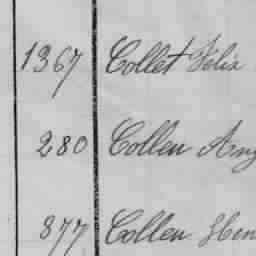 1367 Collet Felix
280 Collen Ang
877 Collen Hen